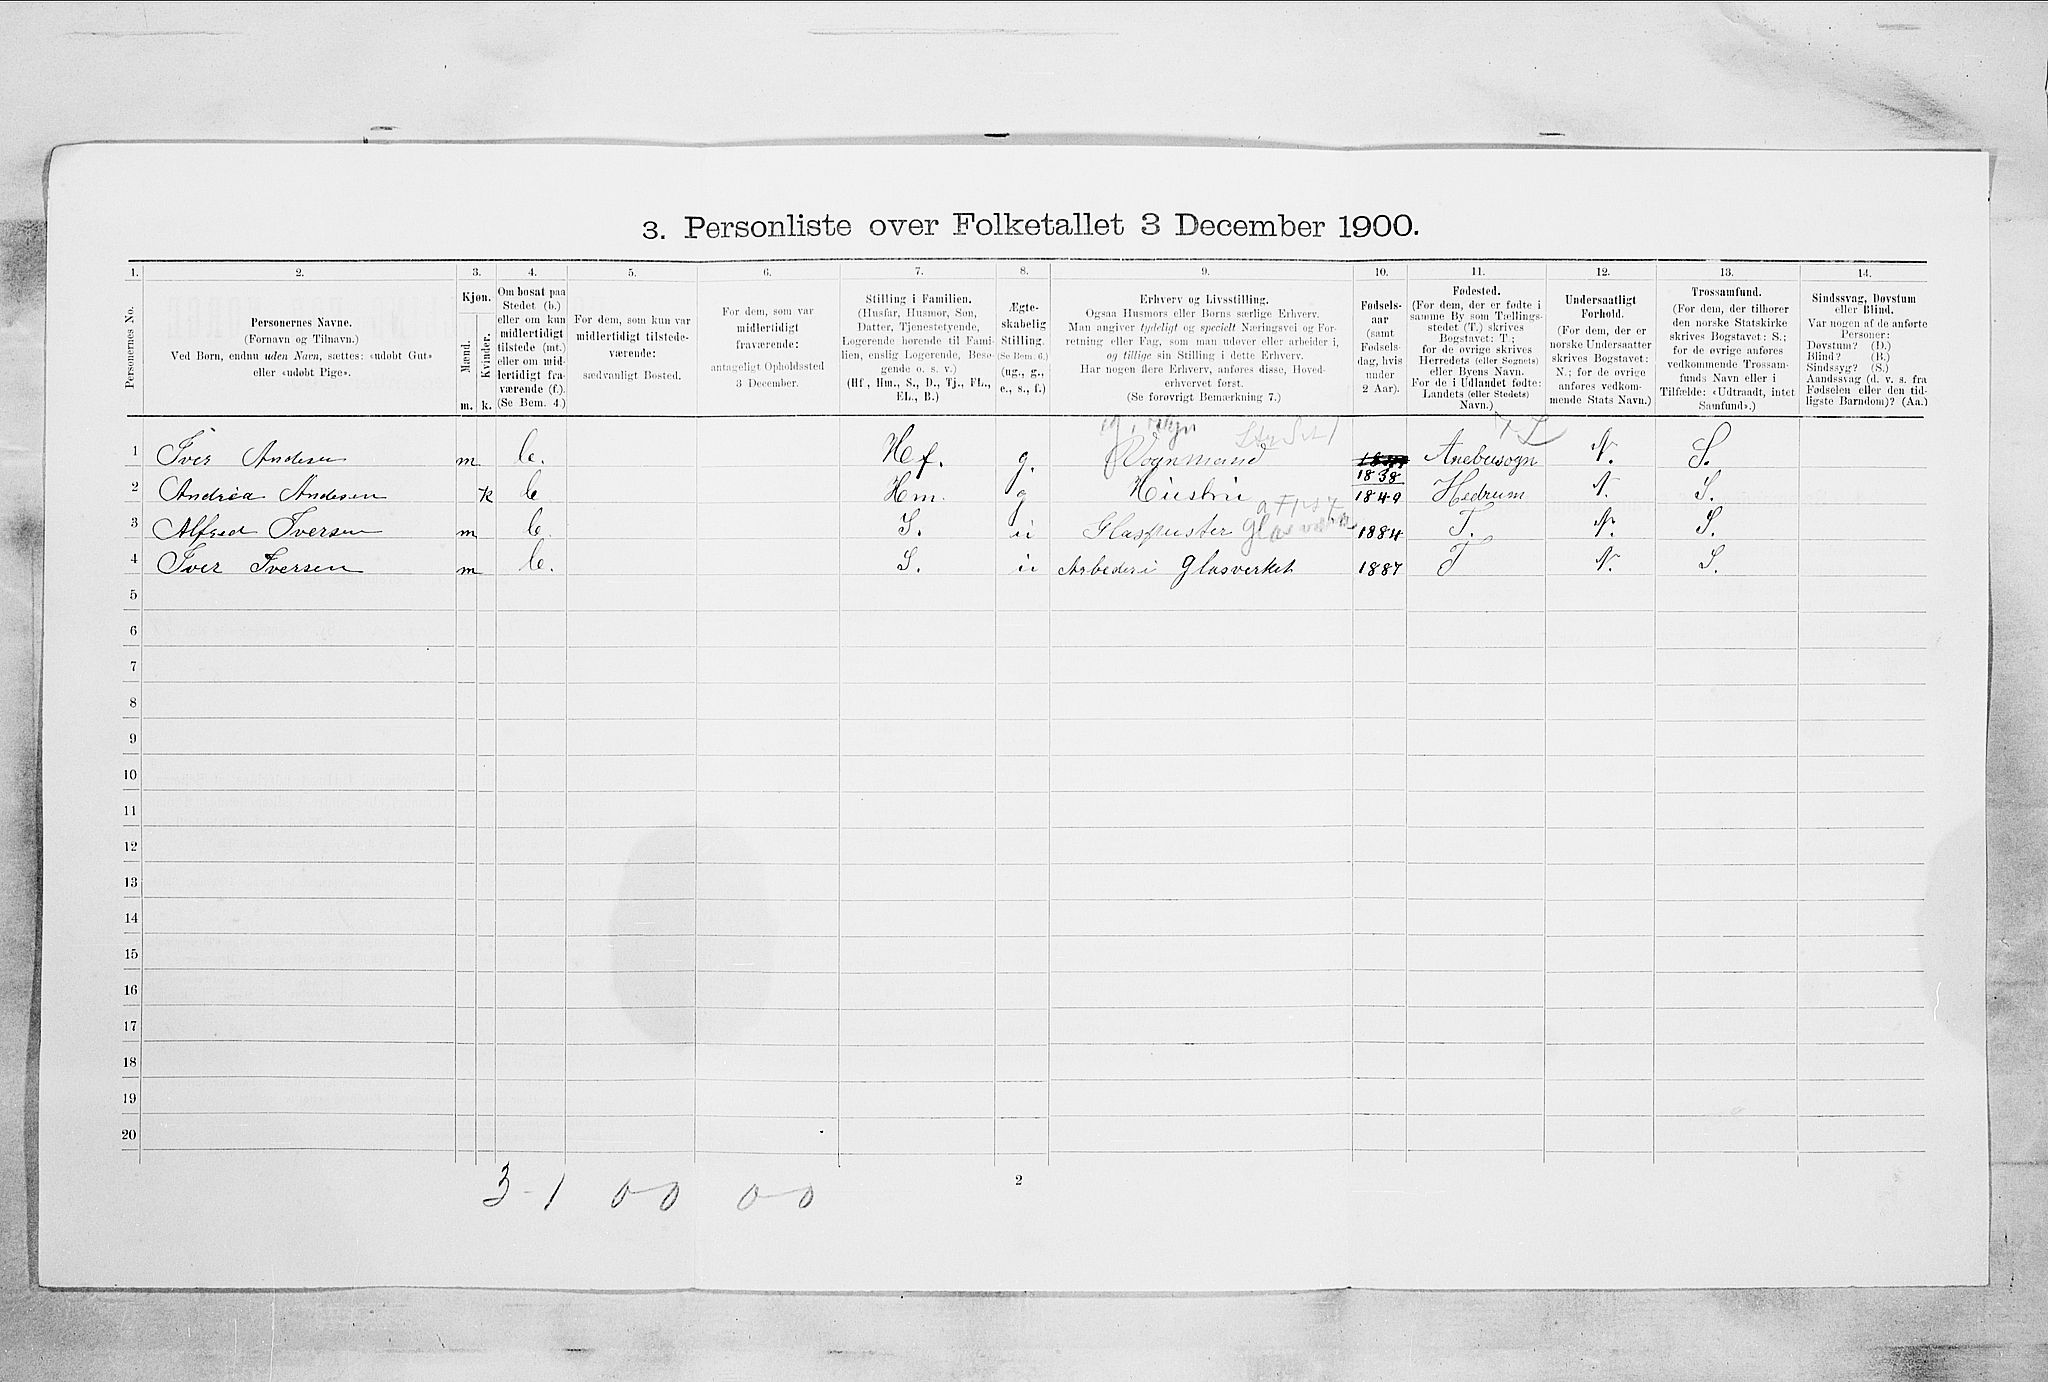 3. Personliste over Folketallet 3 December 1900.
1. 2. 3. 4. 5. 6. 7. 8. 9. 10. 11. 12. 13. 14.
Personernes No.
Personernes Navne.
(Fornavn og Tilnavn.)
Ved Børn, endnu uden Navn, sættes: «udøbt Gut»
eller «udøbt Pige».
Kjøn.
Mænd.
Kvinder.
m. k.
Om bosat paa
Stedet (b.)
eller om kun
midlertidigt
tilstede (mt.)
eller om mid-
lertidigt fra-
værende (f.).
(Se Bem. 4.)
For dem, som kun var
midlertidigt tilstede-
værende:
sædvanligt Bosted.
For dem, som var
midlertidigt
fraværende:
antageligt Opholdssted
3 December.
Stilling i Familien.
(Husfar, Husmor, Søn,
Datter, Tjenestetyende,
Logerende hørende til Fami-
lien, enslig Logerende, Besø-
gende o. s. v.)
(Hf, Hm., S., D., Tj., FL.,
EL., B.)
Ægte-
skabelig
Stilling.
(Se Bem. 6.)
(ug., g.,
e., s., f.)
Erhverv og Livsstilling.
Ogsaa Husmors eller Børns særlige Erhverv.
Man angiver tydeligt og specielt Næringsvei og For-
retning eller Fag, som man udøver eller arbeider i,
og tillige sin Stilling i dette Erhverv.
Har nogen flere Erhverv, anføres disse, Hoved-
erhvervet først.
(Se forøvrigt Bemærkning 7.)
Fødsels-
aar
(samt
Fødsels-
dag, hvis
under
2 Aar).
Fødested.
(For dem, der er fødte i
samme By som Tællings-
stedet (T.) skrives
Bogstavet: T.;
for de øvrige skrives
Herredets (eller Sognets)
eller Byens Navn.
For de i Udlandet fødte:
Landets (eller Stedets)
Navn.)
Undersaatligt
Forhold.
(For dem, der er
norske Undersaatter
skrives Bogstavet:
N.; for de øvrige
anføres vedkom-
mende Stats Navn.)
Trossamfund.
(For dem, der tilhører
den norske Statskirke
skrives Bogstavet: S.;
for de øvrige anføres
vedkommende Trossam-
funds Navn eller i
Tilfælde: «Udtraadt, intet
Samfund».)
Sindssvag, Døvstum
eller Blind.
Var nogen af de anførte
Personer:
Døvstum? (D.)
Blind? (B.)
Sindssyg? (S.)
Aandssvag (d. v. s. fra
Fødselen eller den tid-
ligste Barndom)? (Aa.)
1 Iver Andesen m b. Hf. g. Vognmand 1838 Anebusogn N. S.
2 Andrea Andesen k b Hm. g Hustru 1849 Hedrum N. S.
3 Alfred Iversen m b. S. u Glaspuster Glasværket 1884 T. N. S.
4 Iver Iversen m b. S. u Arbeder i Glasverket 1887 T N. S.
5
6
7
8
9
10
11
12
13
14
15
16
17
18
19
20
3-1 0-0 0-0
2